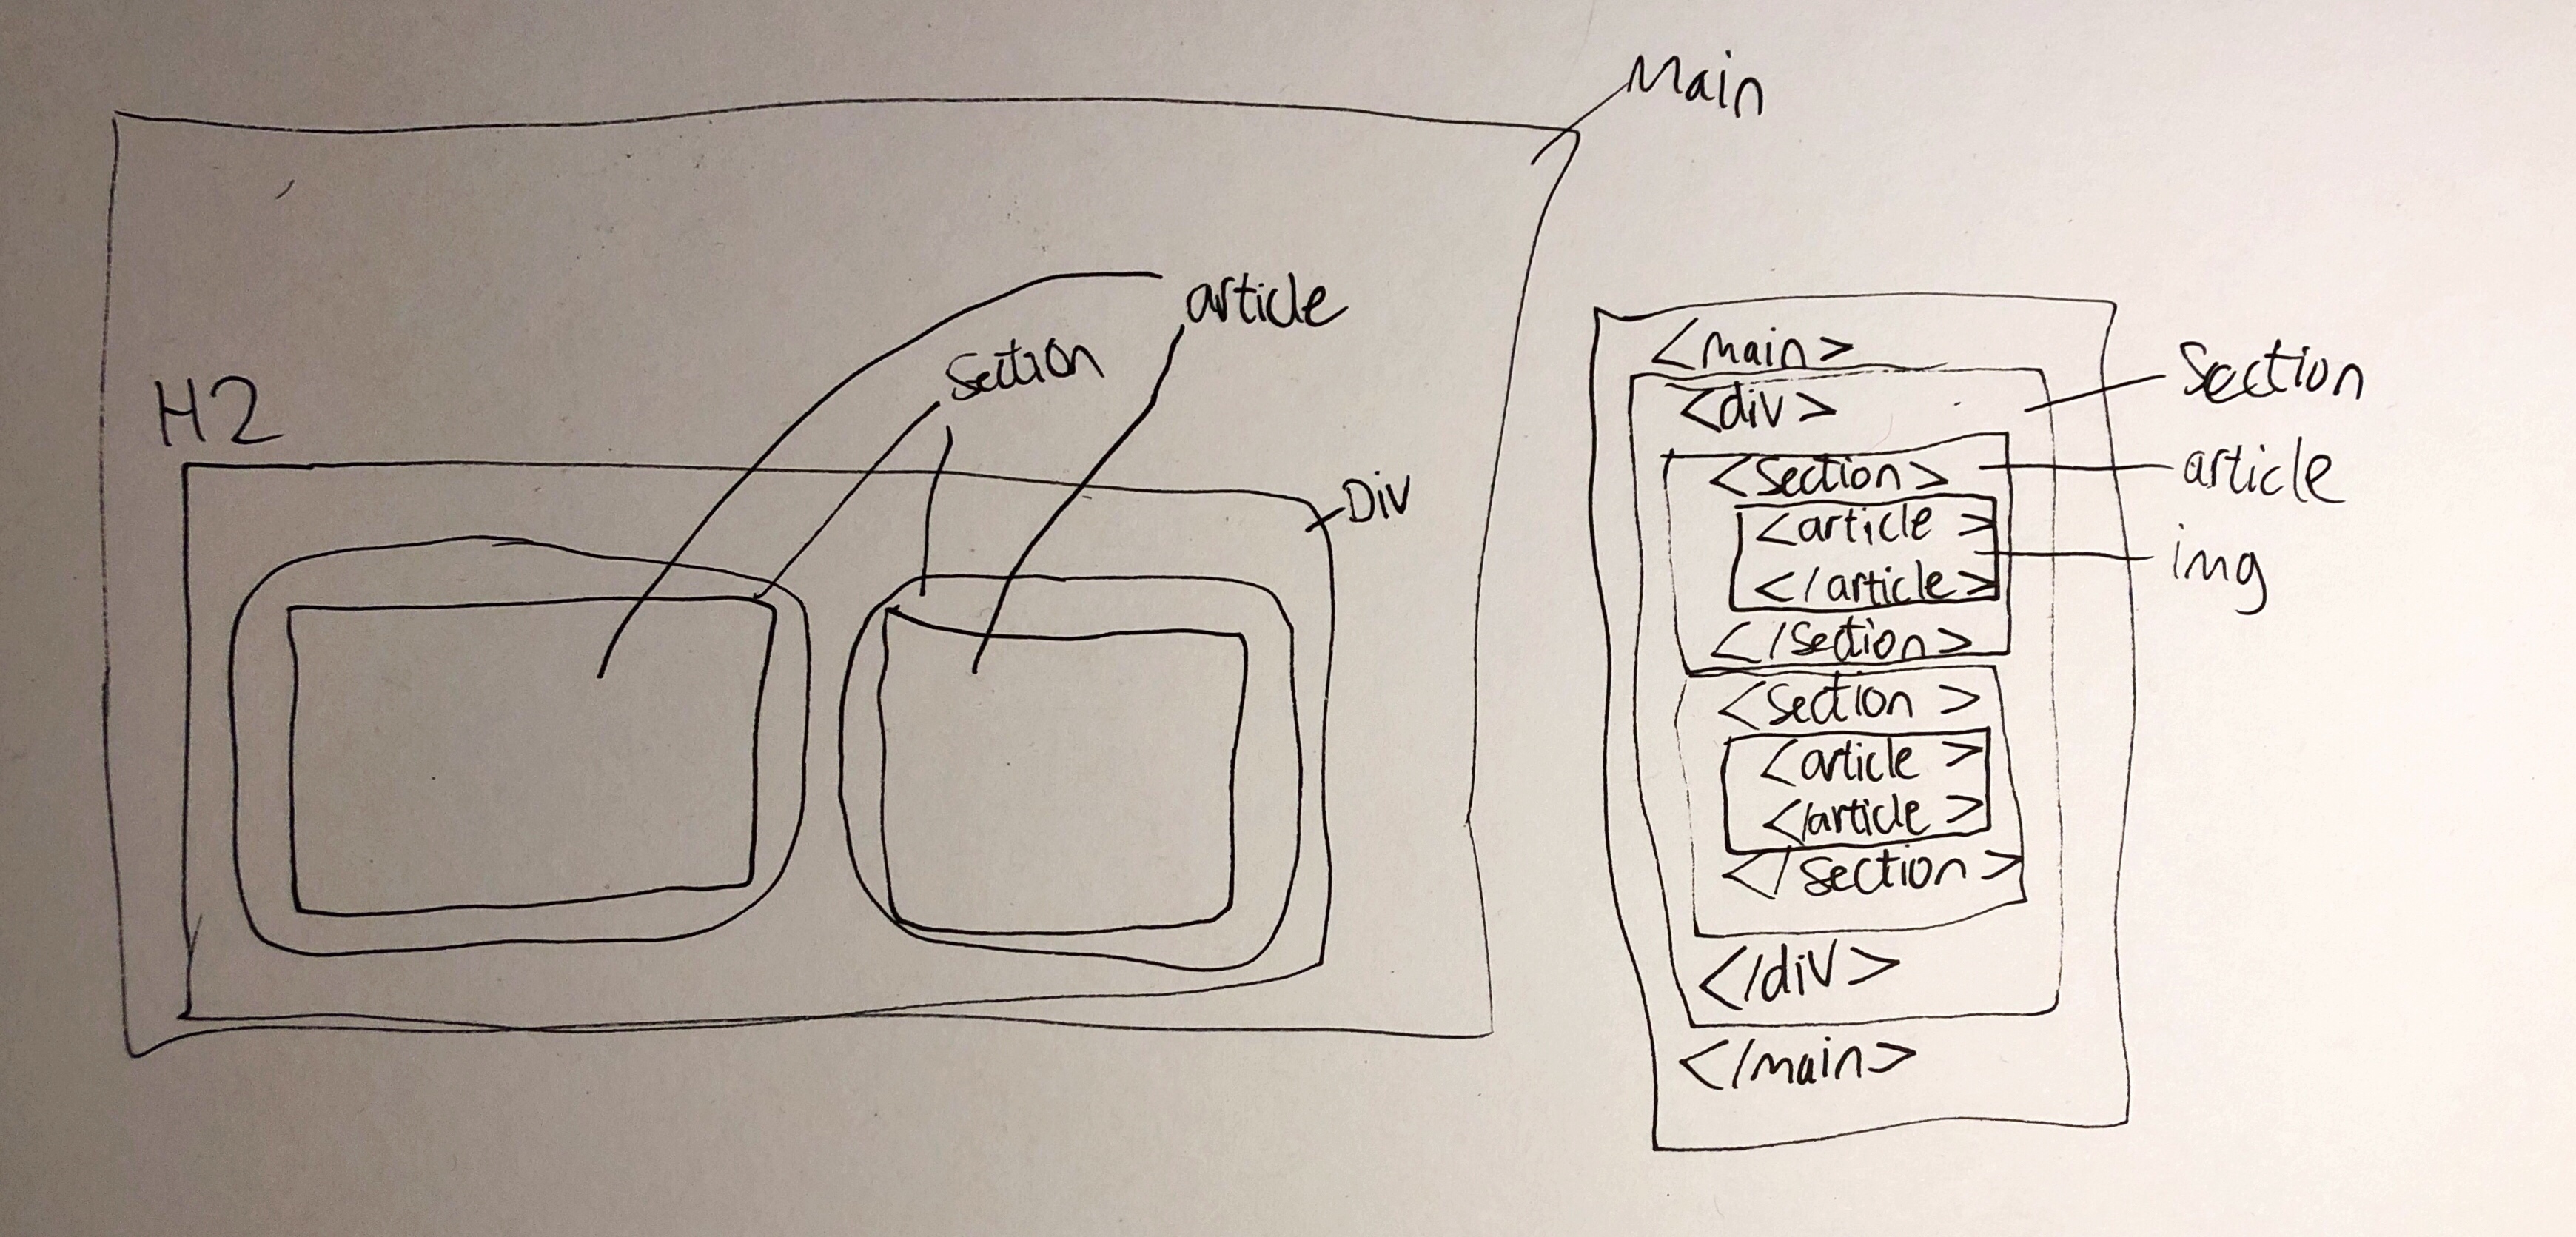 Main
article
Section
H2
Div
<main>
<div>
<section>
<article >
</article>
</section>
<section >
<article >
</article >
</section >
</div>
</main>
Section
article
img